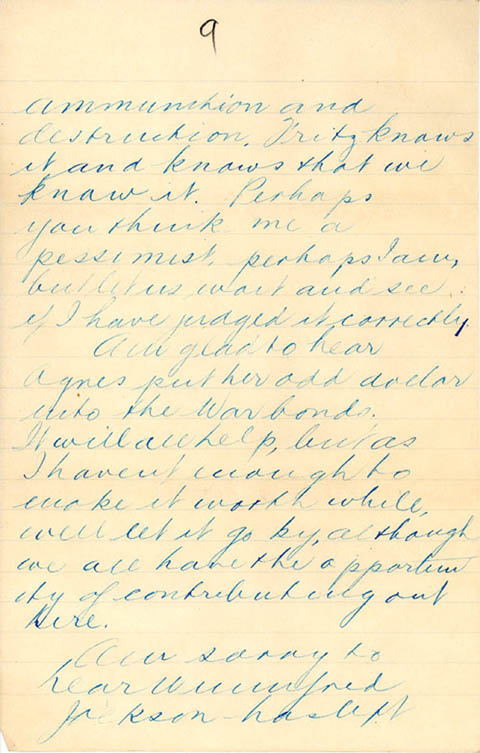 9
ammunition and
destruction. Fritz knows
it and knows that we
know it. Perhaps
you think me a
pessimist, perhaps I am,
but let us wait and see
if I have judged it correctly.
Am glad to hear
Agnes put her odd dollar
into the War bonds.
It will all help, but as
I havent enough to
make it worth while,
will let it go by, although
we all have the opportun
ity of contributing out
here.
Am sorry to
hear Winnifred
Jackson has left